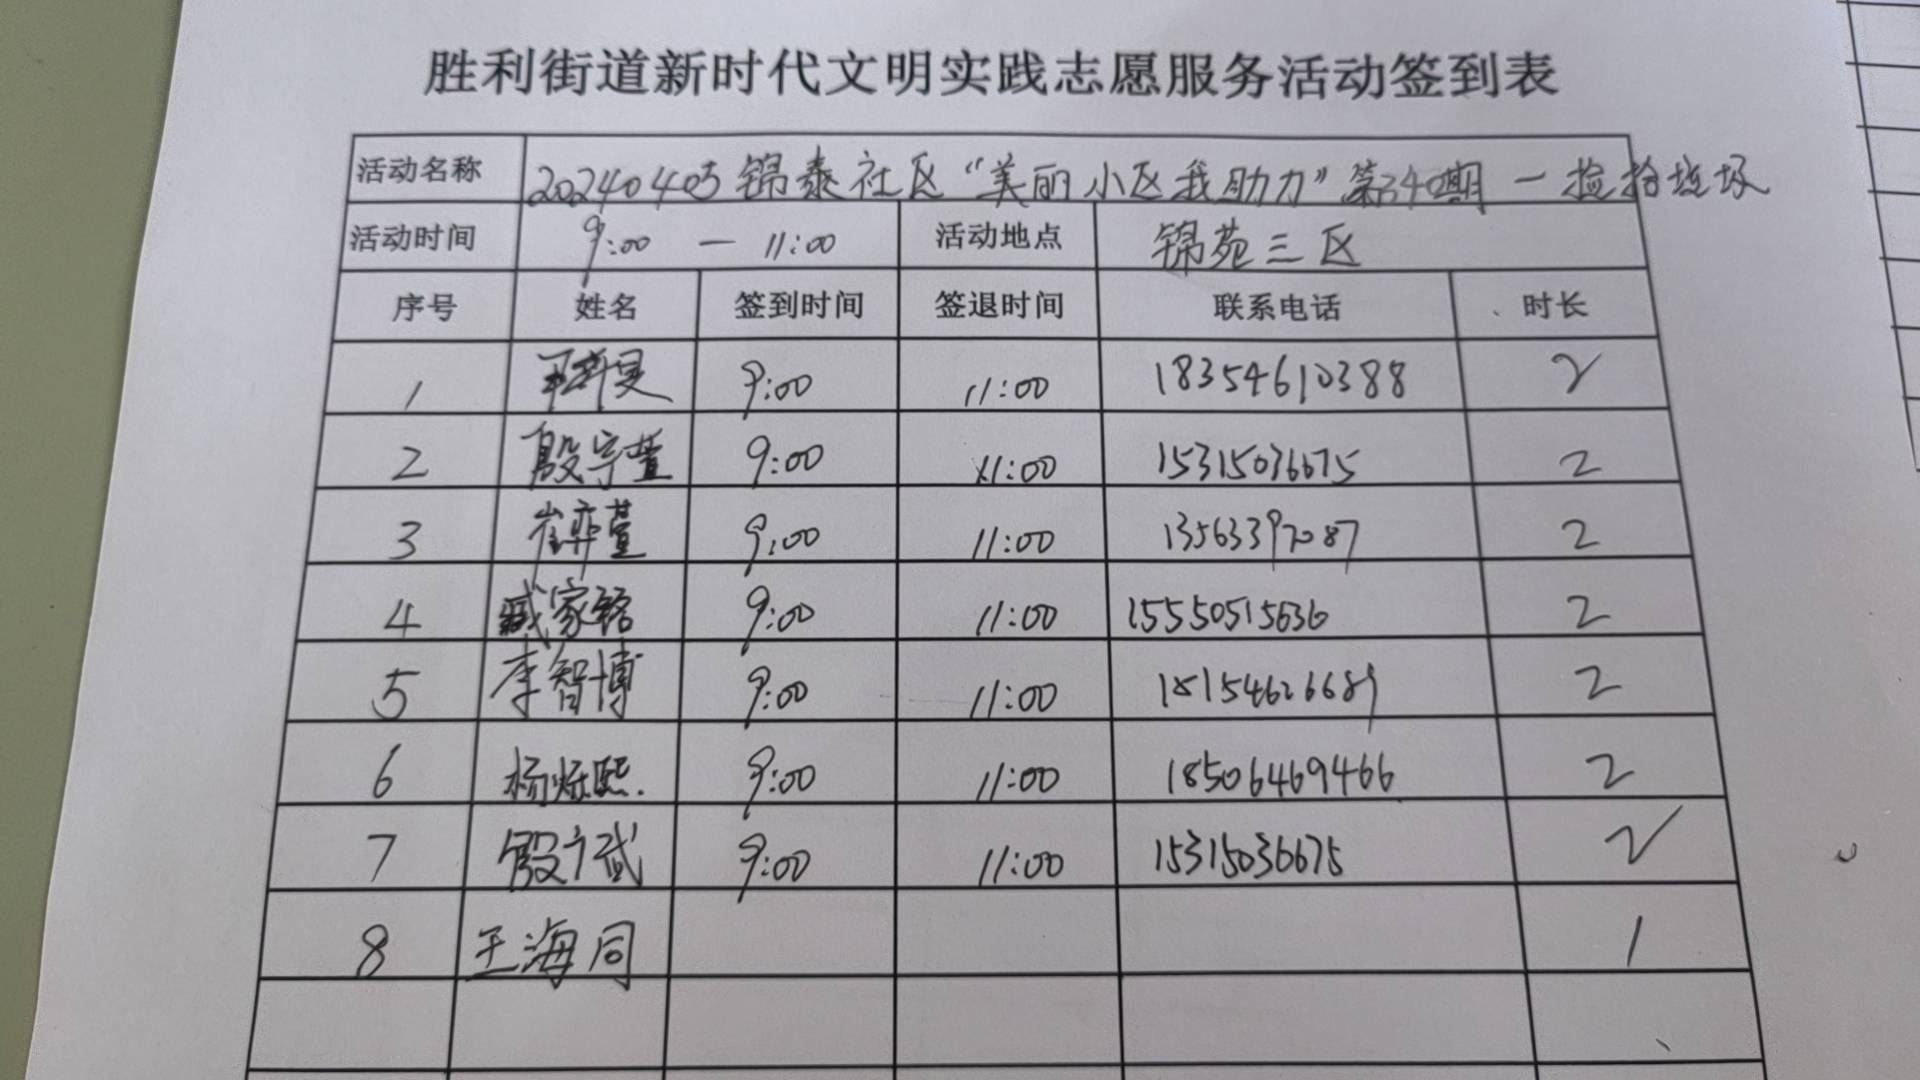 胜利街道新时代文明实践志愿服务活动签到表
活动名称 20240405锦泰社区“美丽小区我助力”第340期一捡拾垃圾
活动时间 9:00 — 11:00 活动地点 锦苑三区
序号 姓名 签到时间 签退时间 联系电话 时长
1 9:00 11:00 18354610388 2
2 殷宇萱 9:00 11:00 15315036675 2
3 崔弈萱 9:00 11:00 13563397087 2
4 臧家铭 9:00 11:00 15550515636 2
5 李智博 9:00 11:00 18154626689 2
6 杨烁熙 9:00 11:00 18506469466 2
7 殷广斌 9:00 11:00 15315036675 2
8 王海同 1